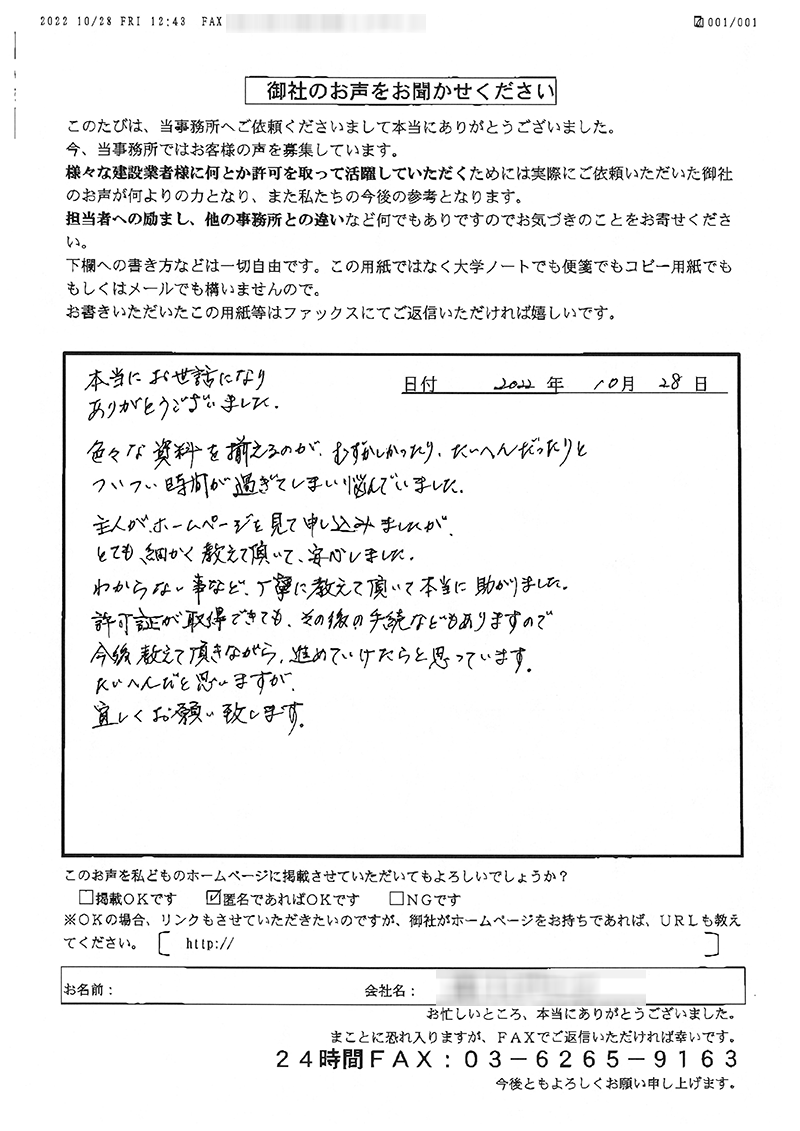 2022 10/28 FRI 12:43 FAX
001/001
御社のお声をお聞かせください
このたびは、当事務所へご依頼くださいまして本当にありがとうございました。
今、当事務所ではお客様の声を募集しています。
様々な建設業者様に何とか許可を取って活躍していただくためには実際にご依頼いただいた御社
のお声が何よりの力となり、また私たちの今後の参考となります。
担当者への励まし、他の事務所との違いなど何でもありですのでお気づきのことをお寄せくださ
い。
下欄への書き方などは一切自由です。この用紙ではなく大学ノートでも便箋でもコピー用紙でも
もしくはメールでも構いませんので。
お書きいただいたこの用紙等はファックスにてご返信いただければ嬉しいです。
日付 2022 年 10月 28 日
本当に お世話になり
ありがとうございました.
色々な 資料を 揃えるのが、むずかしかったり、たいへんだったりと
ついつい 時間が 過ぎてしまい 悩んでいました.
主人が、ホームページを 見て 申し込みましたが、
とても、細かく 教えて頂いて、安心しました.
わからない 事など、丁寧に教えて 頂いて 本当に 助かりました.
許可証が 取得できても、その後の 手続などもありますので
今後 教えて 頂きながら、進めていけたらと 思っています.
たいへんだと 思いますが、
宜しくお願い致します.
このお声を私どものホームページに掲載させていただいてもよろしいでしょうか？
□掲載OKです ☑匿名であればOKです □NGです
※OKの場合、リンクもさせていただきたいのですが、御社がホームページをお持ちであれば、URLも教え
てください。 [ http:// ]
お名前： 会社名：
お忙しいところ、本当にありがとうございました。
まことに恐れ入りますが、FAXでご返信いただければ幸いです。
24時間FAX：03－6265－9163
今後ともよろしくお願い申し上げます。